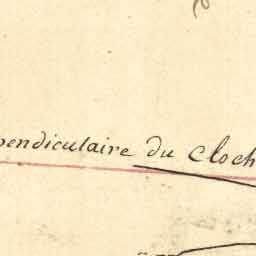 pendiculaire du Cloch